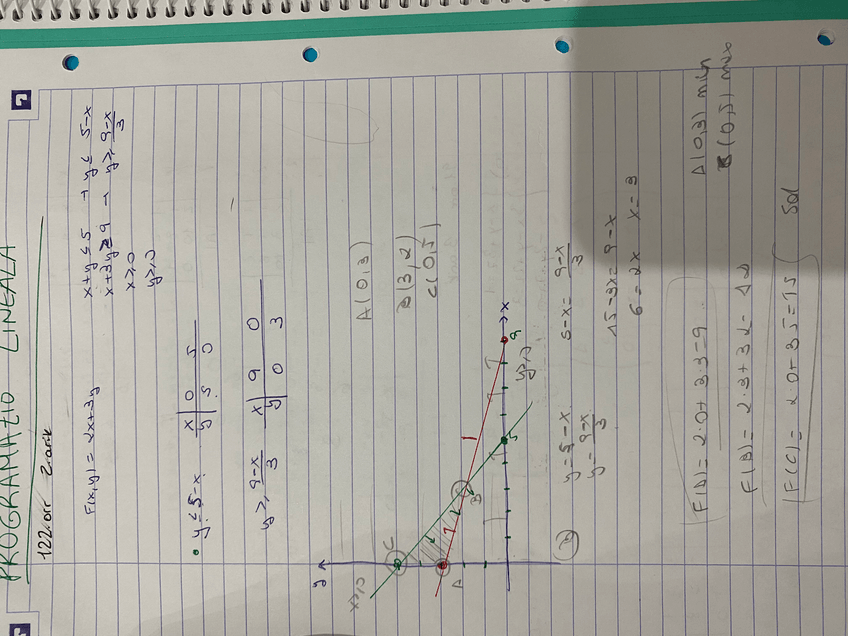 PROGRAMAZIO LINEALA
122.orr 2.arik
F(x,y) = 2x+3y
x+y ≤ 5 → y ≤ 5-x
x+3y ≥ 9 → y ≥ 9-x/3
x ≥ 0
y ≥ 0
• y ≤ 5-x
x | 0 5
y | 5 0
y ≥ 9-x/3
x | 9 0
y | 0 3
A(0,3)
B(3,2)
C(0,5)
y
x ≥ 0
C
A
B
5
9
→ x
y ≥ 0
B y = 5-x
y = 9-x/3
5-x = 9-x/3
15-3x = 9-x
6 = 2x x = 3
F(A) = 2·0+3·3=9
F(B) = 2·3+3·2= 12
F(C) = 2·0+3·5=15
A(0,3) min
C(0,5) max
Sol